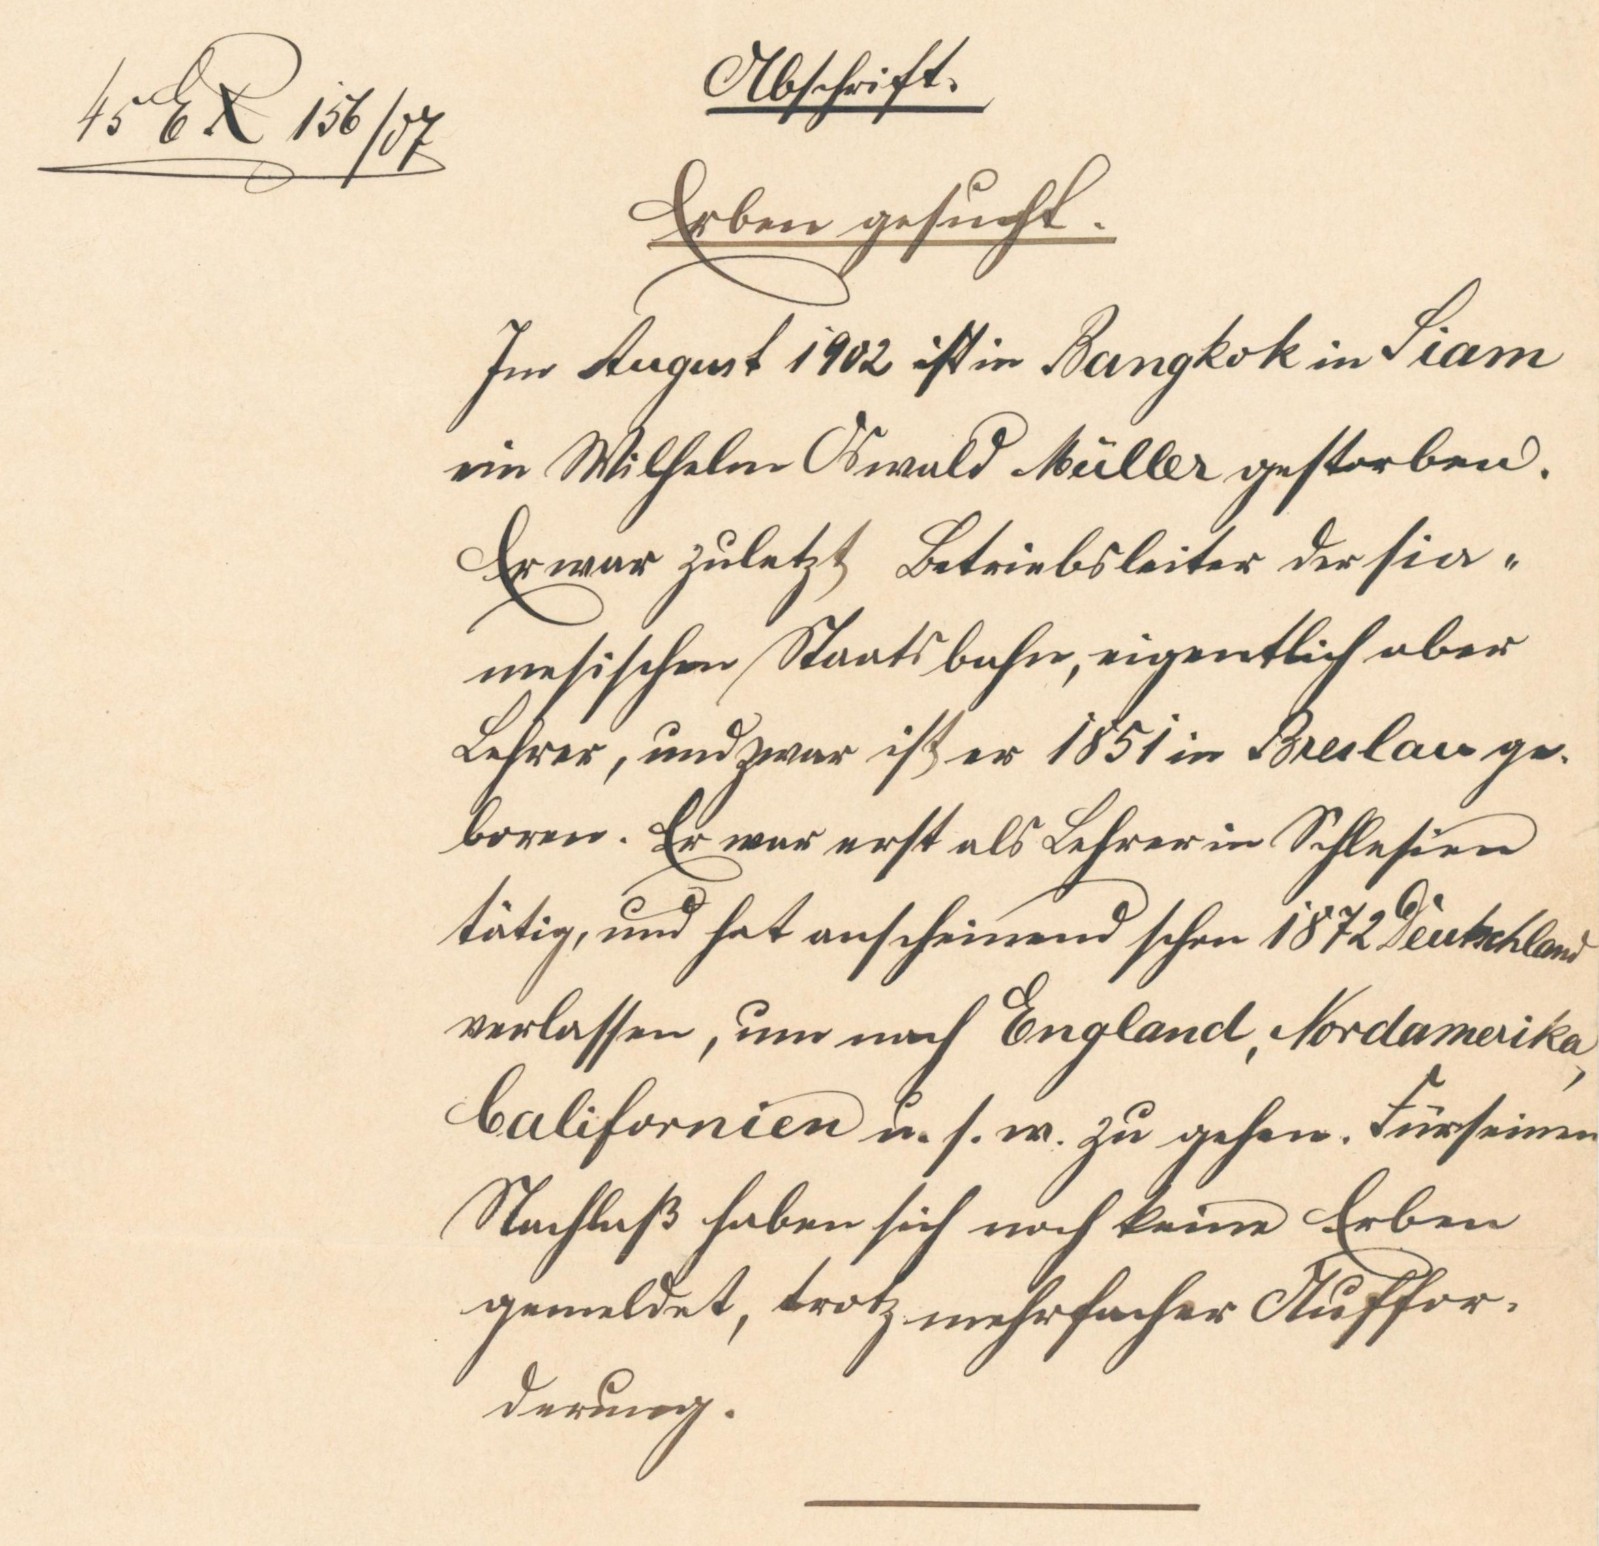 45 E X 156/07
Abschrift.
Erben gesucht.
Im August 1902 ist in Bangkok in Siam
ein Wilhelm Oswald Müller gestorben.
Er war zuletzt Betriebsleiter der sia-
mesischen Staatsbahn, eigentlich aber
Lehrer, und zwar ist er 1851 in Breslau ge-
boren. Er war erst als Lehrer in Schlesien
tätig, und hat anscheinend schon 1872 Deutschland
verlassen, um nach England, Nordamerika,
Californien u. s. w. zu gehen. Für seinen
Nachlaß haben sich noch keine Erben
gemeldet, trotz mehrfacher Auffor-
derung.